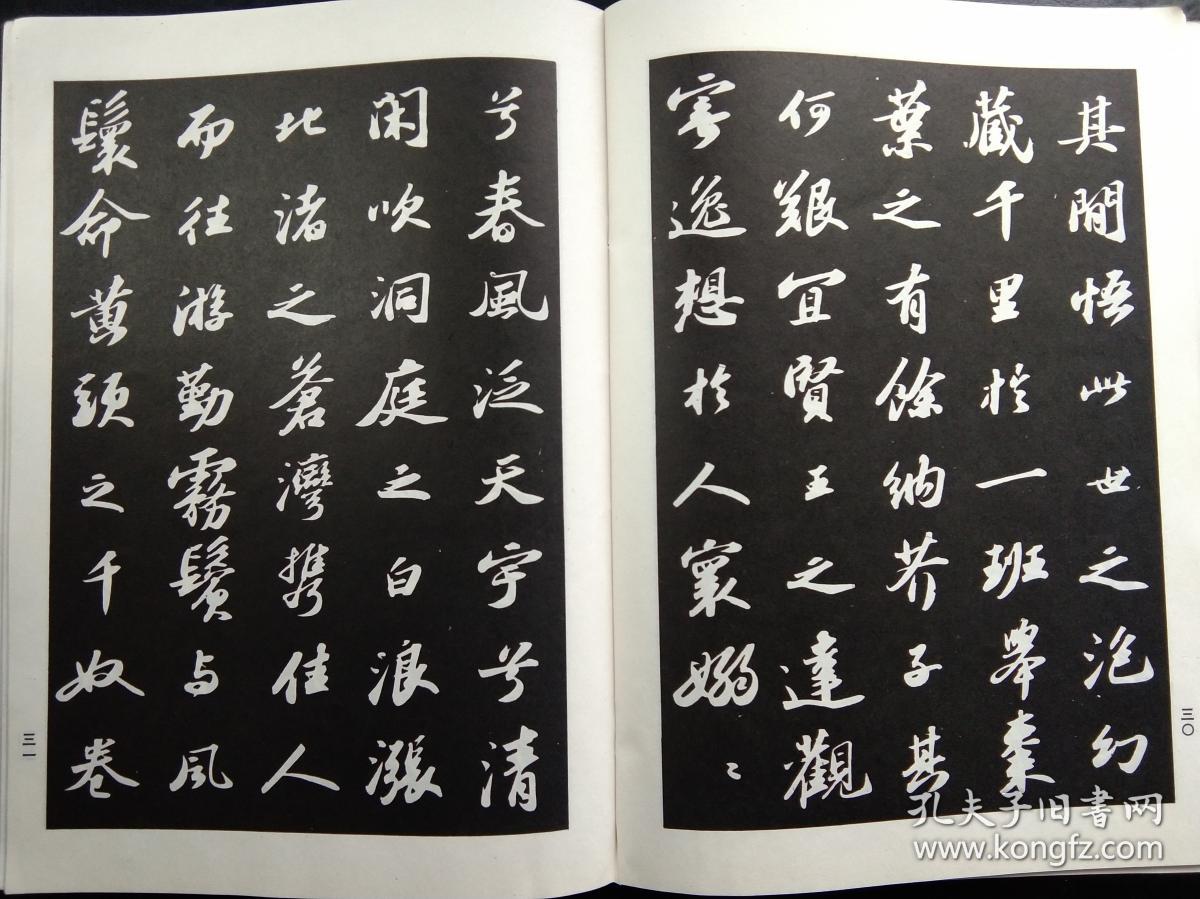 其間悟此世之泡幻
藏千里於一班舉棗
葉之有餘納芥子其
何艱宜賢王之達觀
寄逸想於人寰嫋〻
三〇
兮春風泛天宇兮清
閑吹洞庭之白浪漲
北渚之蒼灣攜佳人
而往游勤霧鬢與風
鬟命黄頭之千奴卷
三一
孔夫子旧书网
www.kongfz.com